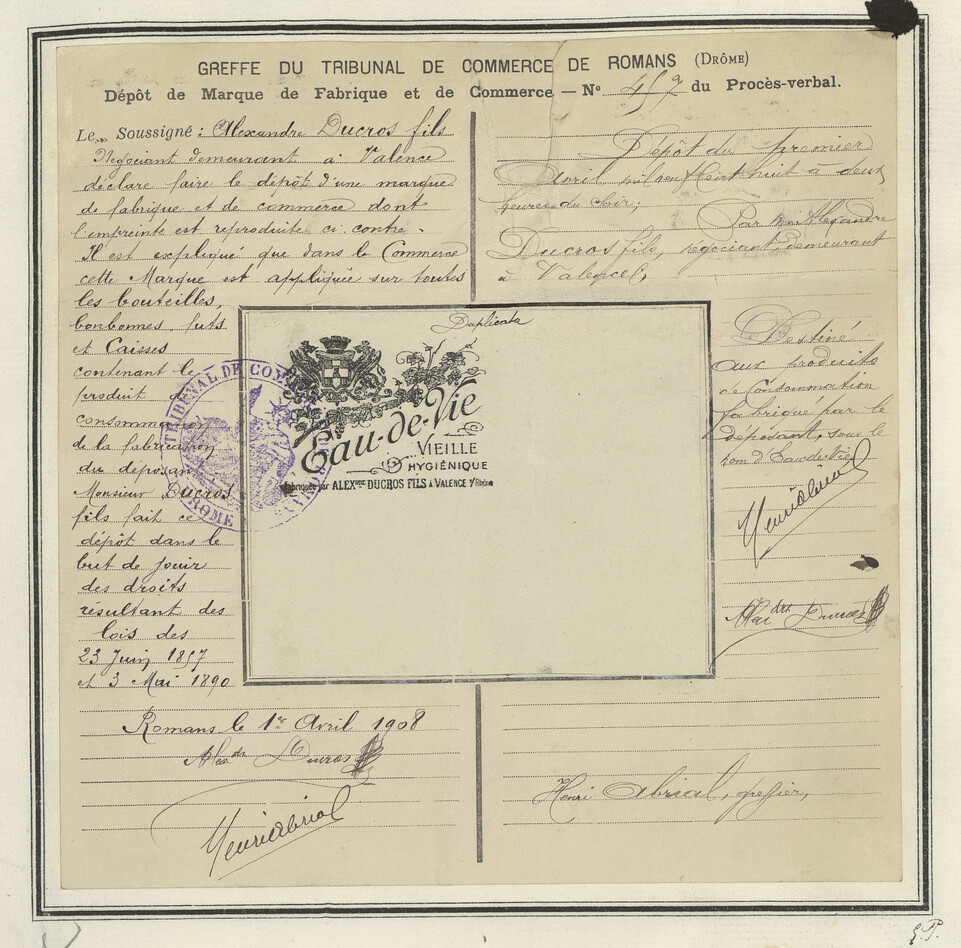 GREFFE DU TRIBUNAL DE COMMERCE DE ROMANS (DRÔME)
Dépôt de Marque de Fabrique et de Commerce — N° du Procès-verbal.
Le Soussigné : Alexandre Ducros fils
Négociant demeurant à Valence
déclare faire le dépôt d'une marque
de fabrique et de commerce dont
l'empreinte est reproduite ci contre.
Il est expliqué que dans le Commerce
cette Marque est appliquée sur toutes
les bouteilles,
bonbonnes, futs
et Caisses
contenant le
produit de
consommation
de la fabrication
du deposant
Monsieur Ducros
fils fait ce
dépôt dans le
but de jouir
des droits
résultant des
lois des
23 Juin 1857
et 3 Mai 1890
Romans le 1er Avril 1908
Alexdre Ducros
Henri Abrial
Duplicata
Eau-de-Vie
VIEILLE
HYGIÉNIQUE
Fabriquée par ALEXDRE DUCROS FILS À VALENCE s/Rhône
TRIBUNAL DE COMM
DROME
Dépôt du premier
Avril mil neuf cent huit à deux
heures du soir;
Par Mr Alexandre
Ducros fils, négociant, demeurant
à Valence;
Destiné
aux produits
de Consommation
fabriqué par le
déposant, sous le
nom d'Eau de Vie
Henri Abrial
Alexdre Ducros
Henri Abrial, greffier,
G.P.